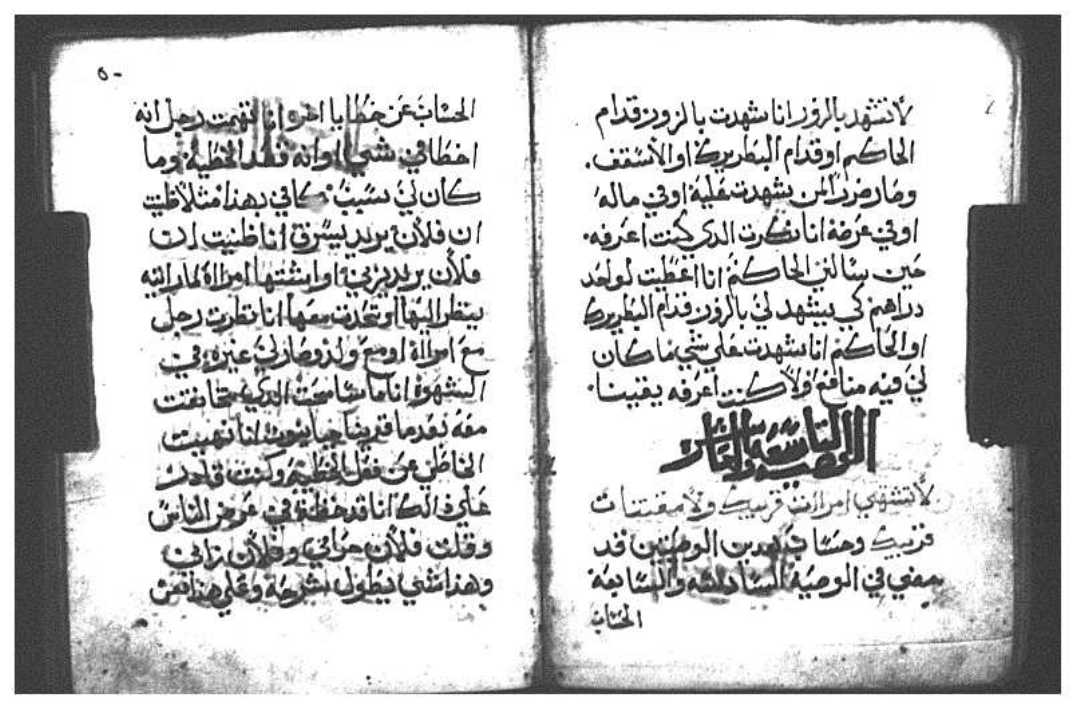 لاتشهد بالزور انا شهدت بالزور قدام
الحاكم او قدام البطريرك او الاسقف.
وصار ضرر لمن شهدت عليه او في ماله
او في عرضه انا نكرت الدي كنت اعرفه.
حين سالني الحاكم انا اعطيت لواحد
دراهم كي يشهد لي بالزور قدام البطريرك
او الحاكم انا شهدت علي شي ما كان
لي فيه منافع ولا كنت اعرفه يقينا.
الوصية التاسعه والعاشر
لاتشتهي امراات قريبك ولا مقتنات
قريبك وحساب هدين الوصيتين قد
مضي في الوصية السادسه والسابعه
الحساب
٥٠
الحساب عن خطايا اخر انا تهمت رجل انه
اخطا في شي او انه فعل الخطيه وما
كان لي سبب كافي بهذا مثلا ظنيت
ان فلان يريد يسرق انا ظنيت ان
فلان يريد يزني او ابشتها امراة لما راتيه
ينظر اليها او يتحدت معها انا نظرت رجل
مع امراة او مع ولد وصار لي غيره في
الشهوة انا ما سامحت الدي تخانقت
معه بعد ما قريبنا انا نهيت
الخاطي عن فعل الخطيه وكنت قادر
علي دالك انا قد حطيت في عرض الناس
وقلت فلان حرامي وفلان زاني
وهدا شي يطول شرحه وعلي هدا نقس